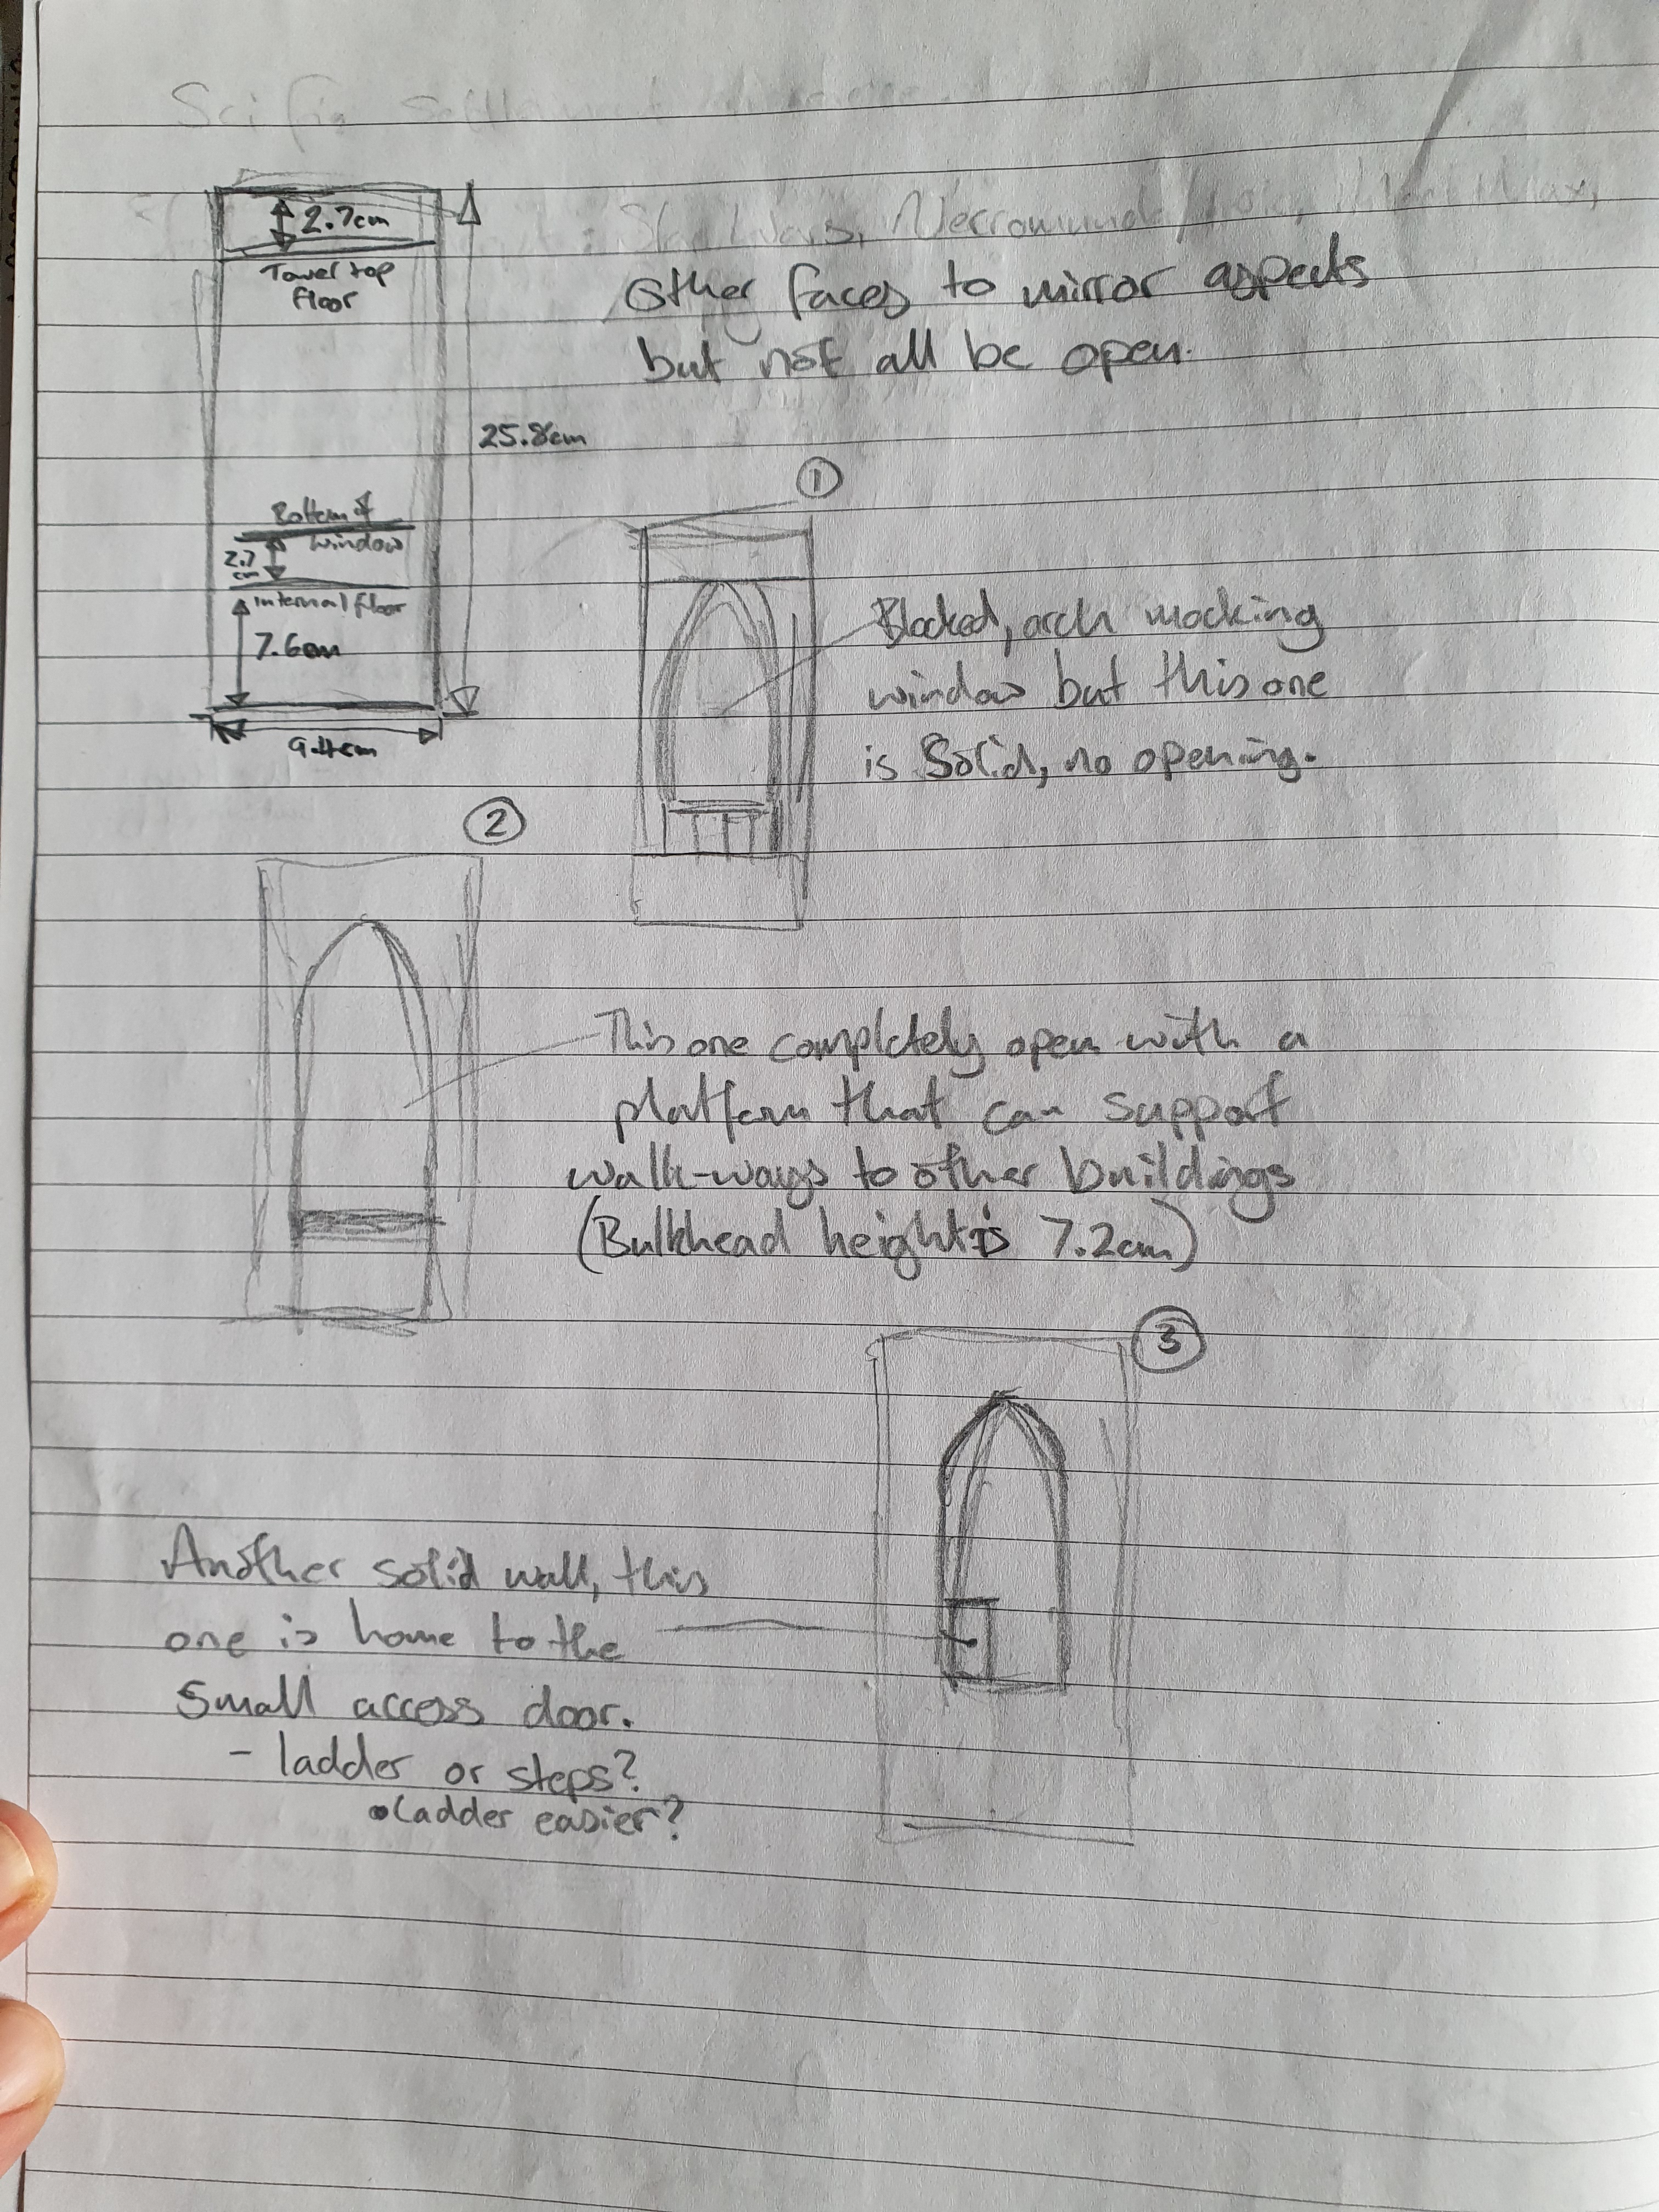 Sci fi
Star Wars, Necromunda
2.7cm
Tower top
floor
Other faces to mirror aspects
but not all be open.
25.8cm
Bottom of
window
2.7
cm
internal floor
7.6cm
9.4cm
1
Blocked, arch mocking
window but this one
is Solid, no opening.
2
This one completely open with a
platform that can support
walk-ways to other buildings
(Bulkhead height is 7.2cm)
3
Another solid wall, this
one is home to the
small access door.
- ladder or steps?
•Ladder easier?